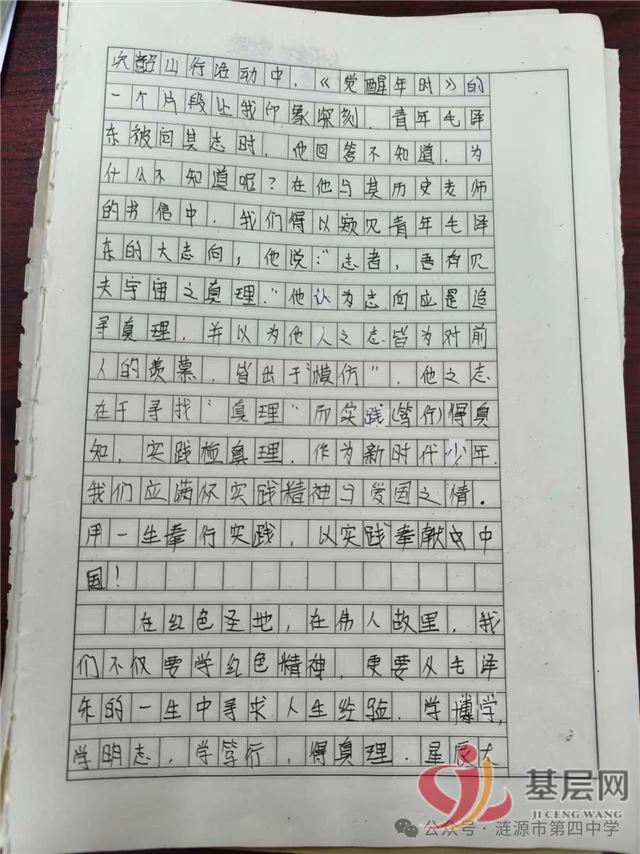 次韶山行活动中，《觉醒年时》的
一个片段让我印象深刻．青年毛泽
东被问其志时，他回答不知道．为
什么不知道呢？在他与其历史老师
的书信中，我们得以窥见青年毛泽
东的大志向，他说："志者，吾有见
夫宇宙之真理．"他认为志向应是追
寻真理，并以为他人之志皆为对前
人的羡慕，皆出于"模仿"．他之志
在于寻找"真理"而实践(笃行)得真
知，实践检真理．作为新时代少年．
我们应满怀实践精神与爱国之情．
用一生奉行实践，以实践奉献中
国！
在红色圣地，在伟人故里．我
们不仅要学红色精神，更要从毛泽
东的一生中寻求人生经验．学博学，
学明志，学笃行，得真理．星辰大
基层网
JI CENG WANG
公众号·涟源市第四中学